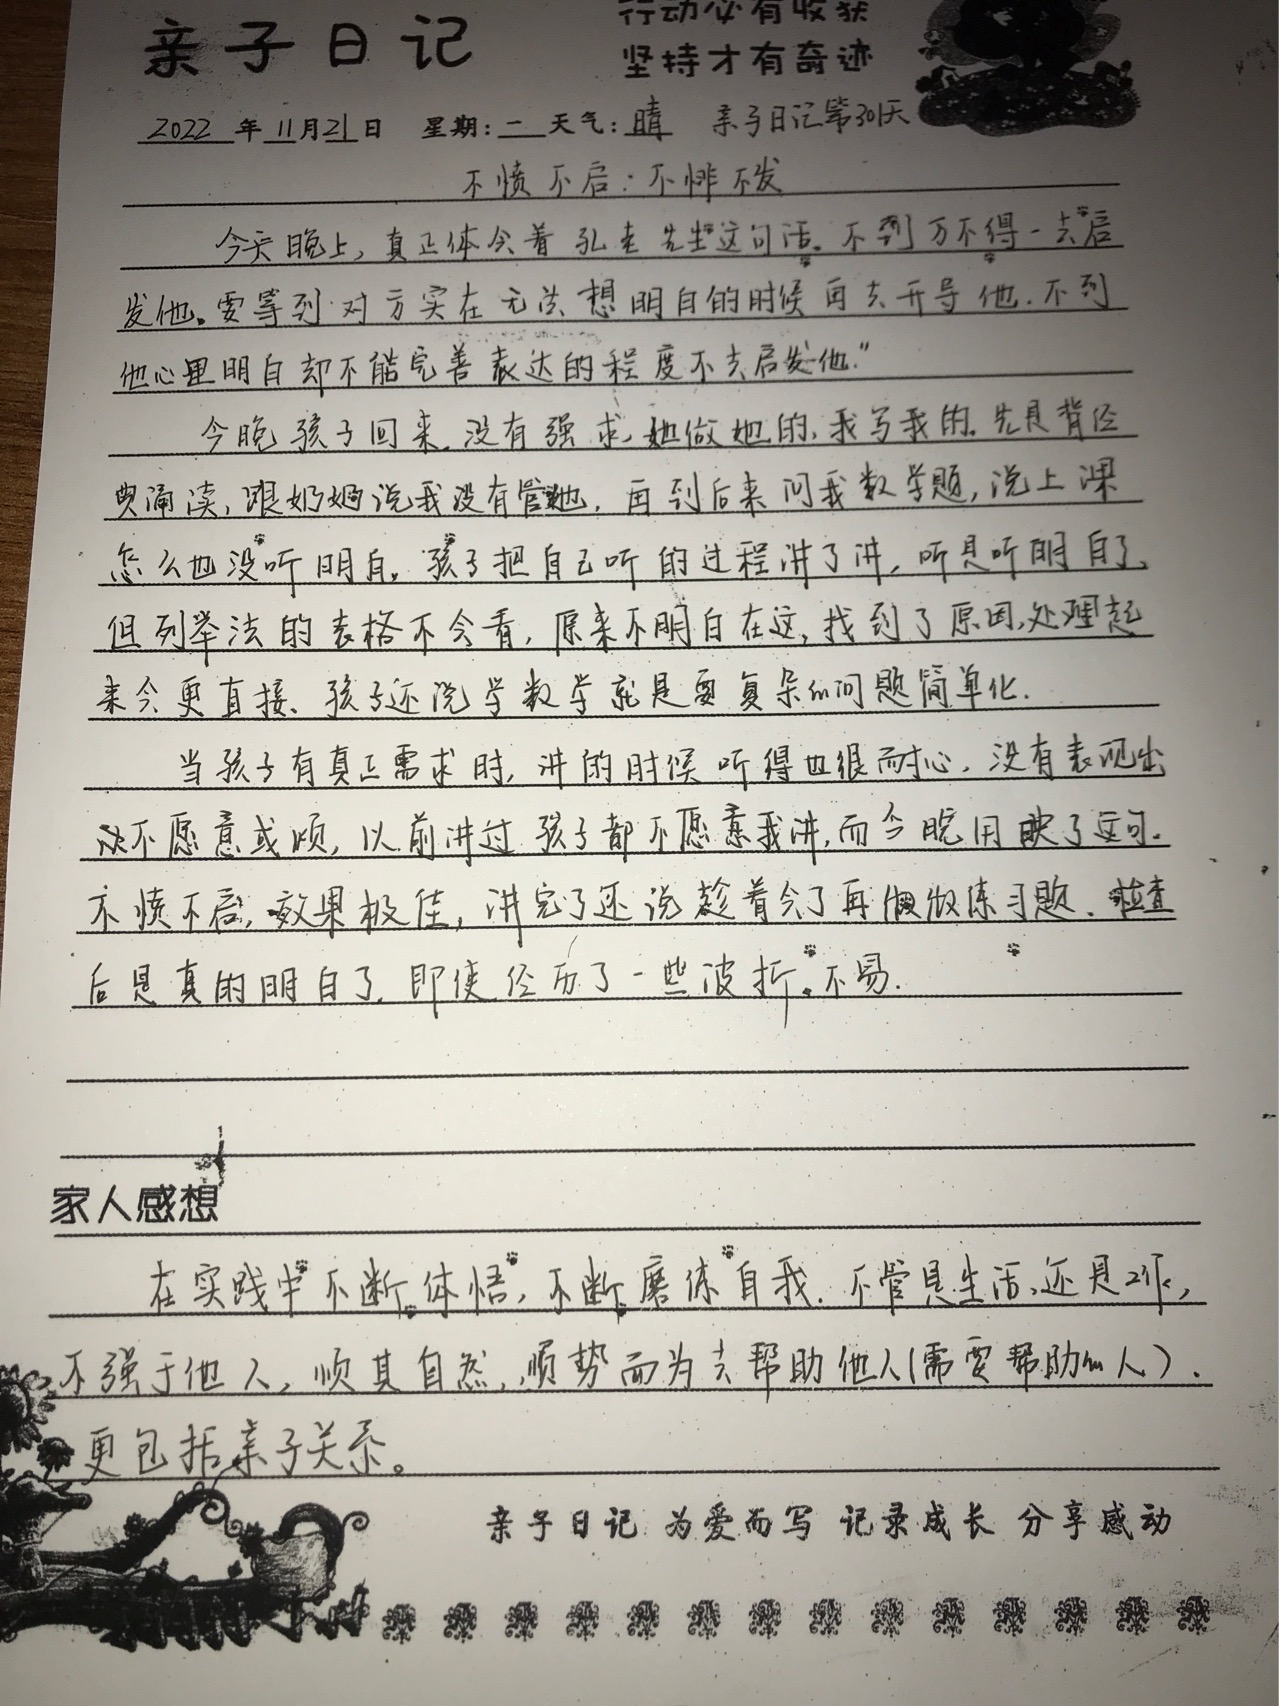 行动必有收获
亲子日记
坚持才有奇迹
2022年11月21日 星期:一 天气:晴 亲子日记第301天
不愤不启:不悱不发
今天晚上,真正体会着孔老先生这句话。不到万不得一去启
发他。要等到对方实在无法想明白的时候再去开导他.不到
他心里明白却不能完善表达的程度不去启发他."
今晚孩子回来.没有强求,她做她的,我写我的.先是背经
典诵读,跟奶奶说我没有管她,再到后来问我数学题,说上课
怎么也没听明白.孩子把自己听的过程讲了讲,听是听明白了,
但列举法的表格不会看,原来不明白在这,找到了原因,处理起
来会更直接、孩子还说学数学就是要复杂的问题简单化.
当孩子有真正需求时,讲的时候听得也很耐心.没有表现出
不愿意或烦,以前讲过孩子都不愿意我讲,而今晚用了这句.
不愤不启,效果极佳,讲完了还说趁着会了再做做练习题.检查
后是真的明白了.即使经历了一些波折.不易.
家人感想
在实践中不断体悟,不断磨练自我.不管是生活,还是工作,
不强于他人,顺其自然,顺势而为去帮助他人(需要帮助的人).
更包括亲子关系。
亲子日记 为爱而写 记录成长 分享感动